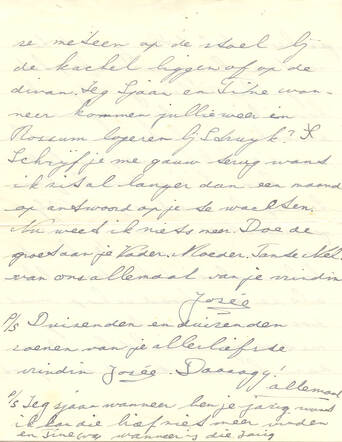 ze meteen op de stoel bij
de kachel liggen of op de
divan. Zeg Sjaan en Tine wan-
neer kommen jullie weer in
Rossum logeren bij Struyk? X
Schrijf je me gauw terug want
ik zit al langer dan een maand
op antwoord op je te wachten.
Nu weet ik niets meer. Doe de
groet aan je Vader, Moeder, Tante Nel.
van ons allemaal van je vriendin
Josée
P/s Duizenden en duizenden
zoenen van je allerliefste
vriendin Josée. Daaagg!
allemaal
P/s Zeg sjaan wanneer ben je jarig want
ik kan die brief niet meer vinden
en Tine wanneer is die jarig